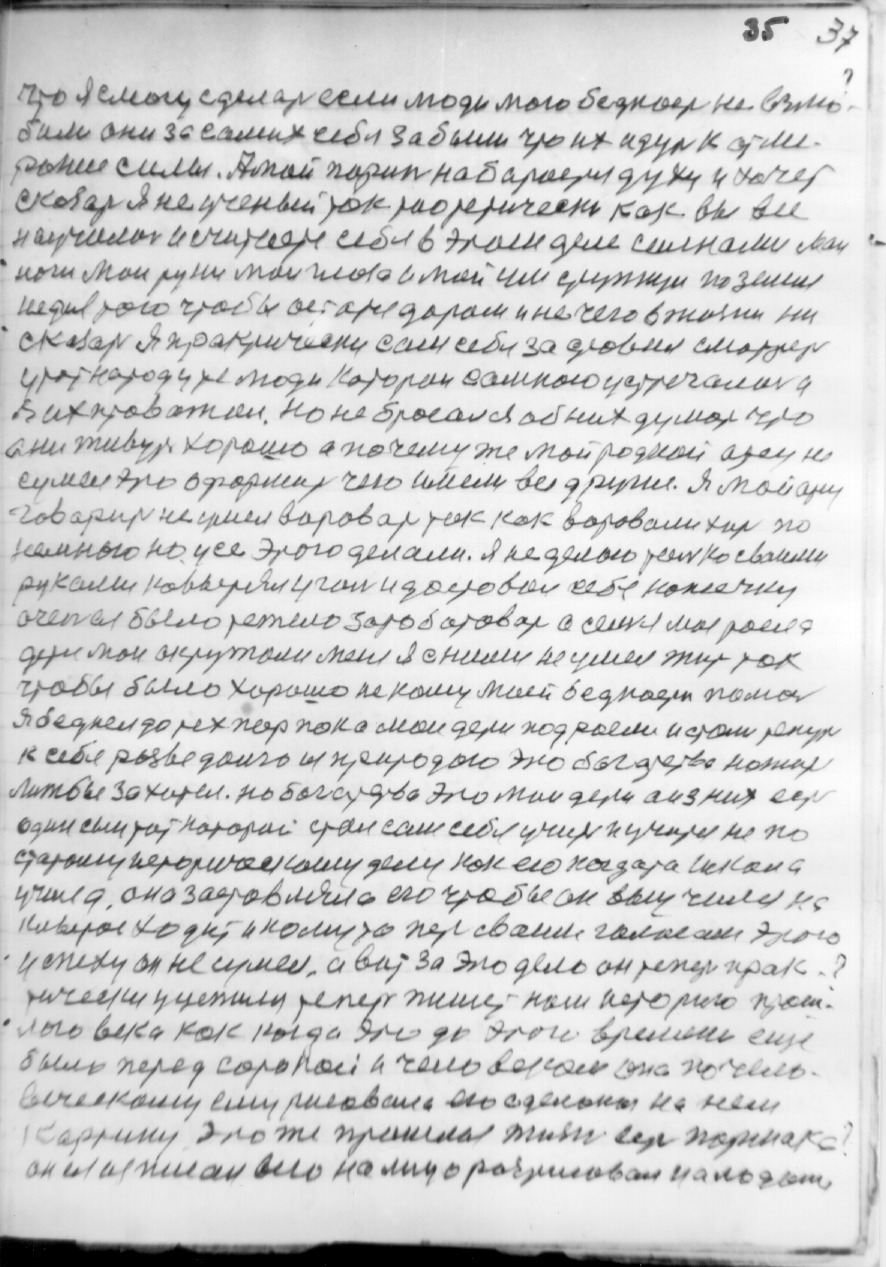 35 37
что я смогу сделат если люди мого бедноер не взлю-
били они за самих себя забыли что их идут к отме-
рание силы. А мой парин набароется духу и хочет
сказат я не ученый так теоретически как вы все
научилис и считаете себя в этом деле силнами маи
ноги маи руки маи глоза и мой ум служили по земли
не для того чтобы остатся даром и не чего в жизни ни
сказат я практически сам себя за словил смотрел
у тот народ у те люди каторыи самною устречалис и
я их провожал. Но не бросался об них думат что
ани живут хорошо а почему же мой родной атец не
сумел это оформит чего имели все други. Я мой атец
говарит не умел вороват так как воровали хот по
немного но усе этого делали. Я не делал только сваими
руками ковырял и гол и доставал себе копеечку
очен ея было тежело зароботават а семя моя росла
дети маи окружали меня я с ними не умел жит так
чтобы было хорошо не кому маей беднаети помоч
я беднел до тех пор пока маи дети подросли и стали тенут
к себе разве долго и природаю это богатства нажит
литбы захотел. но богатства это маи дети а из них ест
один сын тот каторый стал сам себя учит и учится не по
старому историческому делу как его когдата школа
учила, она заставляла его чтобы он выучился на
каторое ходит и кому то пел сваими голосами этого
успеху он не сумел, а вот за это дело он тепер прак-?
тически уцепился тепер пишет наш историю прош-
лого века как когда это до этого времени еще
было перед сарокой и человеком она по чело-
вическому ему рисовала его сделоной на нем
картину это же прошлая жизн ест парнака?
он